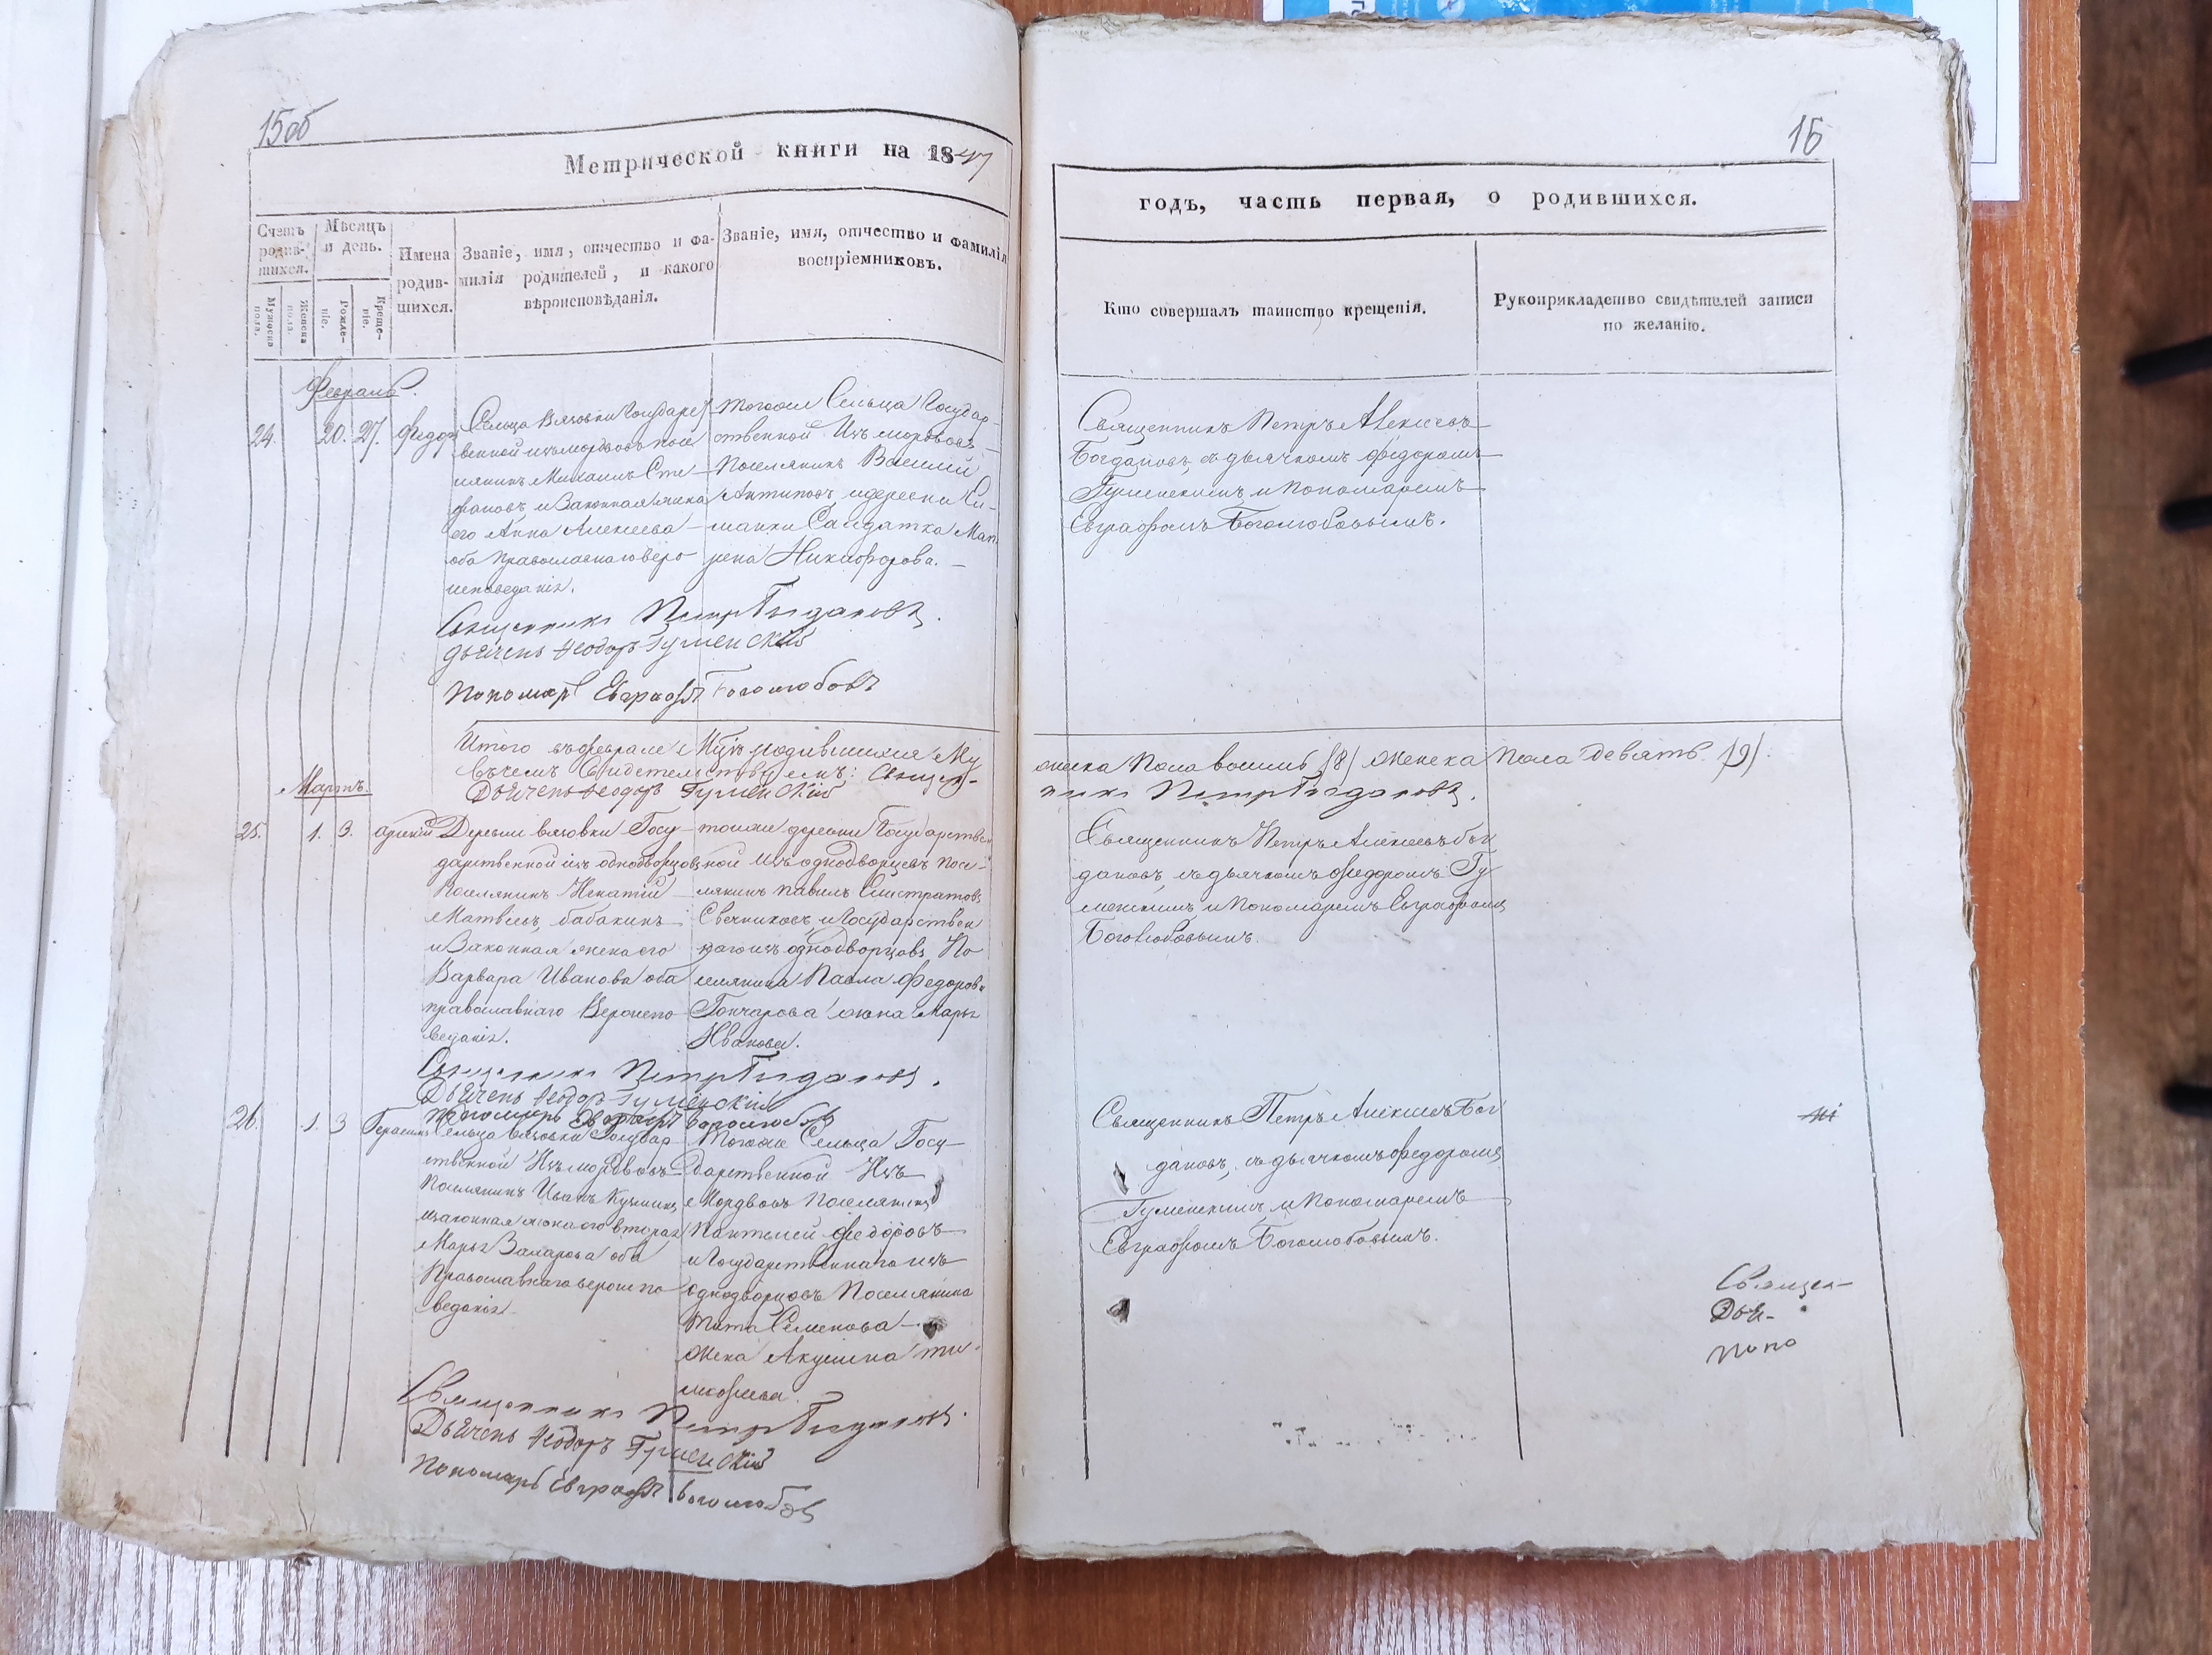 15об
Метрической книги на 1847
Счетъ родив-
шихся.
Мужеска пола.
Женска пола.
Мѣсяцъ
и день.
Рожде-
ніе.
Креще-
ніе.
Имена
родив-
шихся.
Званіе, имя, отчество и фа-
милія родителей, и какого
вѣроисповѣданія.
Званіе, имя, отчество и фамилія
воспріемниковъ.
Февраль.
24. 20. 27. Федор
Сельца Вязовки Государст
венной изъ мордовъ посе
лянинъ Михаилъ Сте
фановъ и Законная жена
его Анна Алексеева
оба православнаго веро
исповеданія.
тогоже Сельца Государ-
ственной Изъ мордовъ
Поселянинъ Василий
Антиповъ и деревни
Салдатка Мат
рена Никифорова.
Священникъ Петръ Богдановъ.
Дьячекъ Феодоръ Гуменский
Пономарь Евграфъ Боголюбовъ
Итого въ феврале Мцѣ родившихся Му
въ чемъ Свидетельствуемъ: Священ-
Дьячекъ Феодоръ Гуменский
Мартъ.
25. 1. 3.
Деревни Вязовки Госу
дарственной изъ однодворцовъ
Поселянинъ Игнатий
Матвеевъ Бабакинъ
и Законная жена его
Варвара Иванова оба
православнаго Вероиспо
веданія.
тойже деревни Государствен
ной изъ однодворцевъ посе-
лянинъ Павелъ Елистратовъ
Свечниковъ и Государствен
наго изъ однодворцовъ По
селянина Павла Федорова
Гончарова жена Марья
Иванова.
Священникъ Петръ Богдановъ.
Дьячекъ Феодоръ Гуменский
Пономарь Евграфъ Боголюбовъ
26. 1. 3 Герасимъ
Сельца Вязовки Государ
ственной Изъ мордовъ
Поселянинъ Иванъ
законная жена его вторая
Марья Захарова оба
Православнаго вероиспо
веданія
Тогоже Сельца Госу
дарственной Изъ
Мордвовъ Поселянинъ
Пантелей Федоровъ
и Государственнаго изъ
однодворцовъ Поселянина
Тита Семенова
жена Акулина Ти
мофеева.
Священникъ Петръ Богдановъ.
Дьячекъ Феодоръ Гуменский
Пономарь Евграфъ Боголюбовъ
16
годъ, часть первая, о родившихся.
Кто совершалъ таинство крещенія.
Рукоприкладство свидѣтелей записи
по желанію.
Священникъ Петръ Алексеевъ
Богдановъ, съ дьячкомъ Федоромъ
Гуменскимъ и Пономаремъ
Евграфомъ Боголюбовымъ.
жеска Пола восемь (8) женска Пола девять (9).
никъ Петръ Богдановъ.
Священникъ Петръ Алексеевъ Бог
дановъ, съ дьячкомъ Федоромъ Гу
менскимъ и Пономаремъ Евграфомъ
Боголюбовымъ.
Священникъ Петръ Алексеевъ Бог
дановъ, съ дьячкомъ Федоромъ
Гуменскимъ и Пономаремъ
Евграфомъ Боголюбовымъ.
Священ-
Дья-
Поно